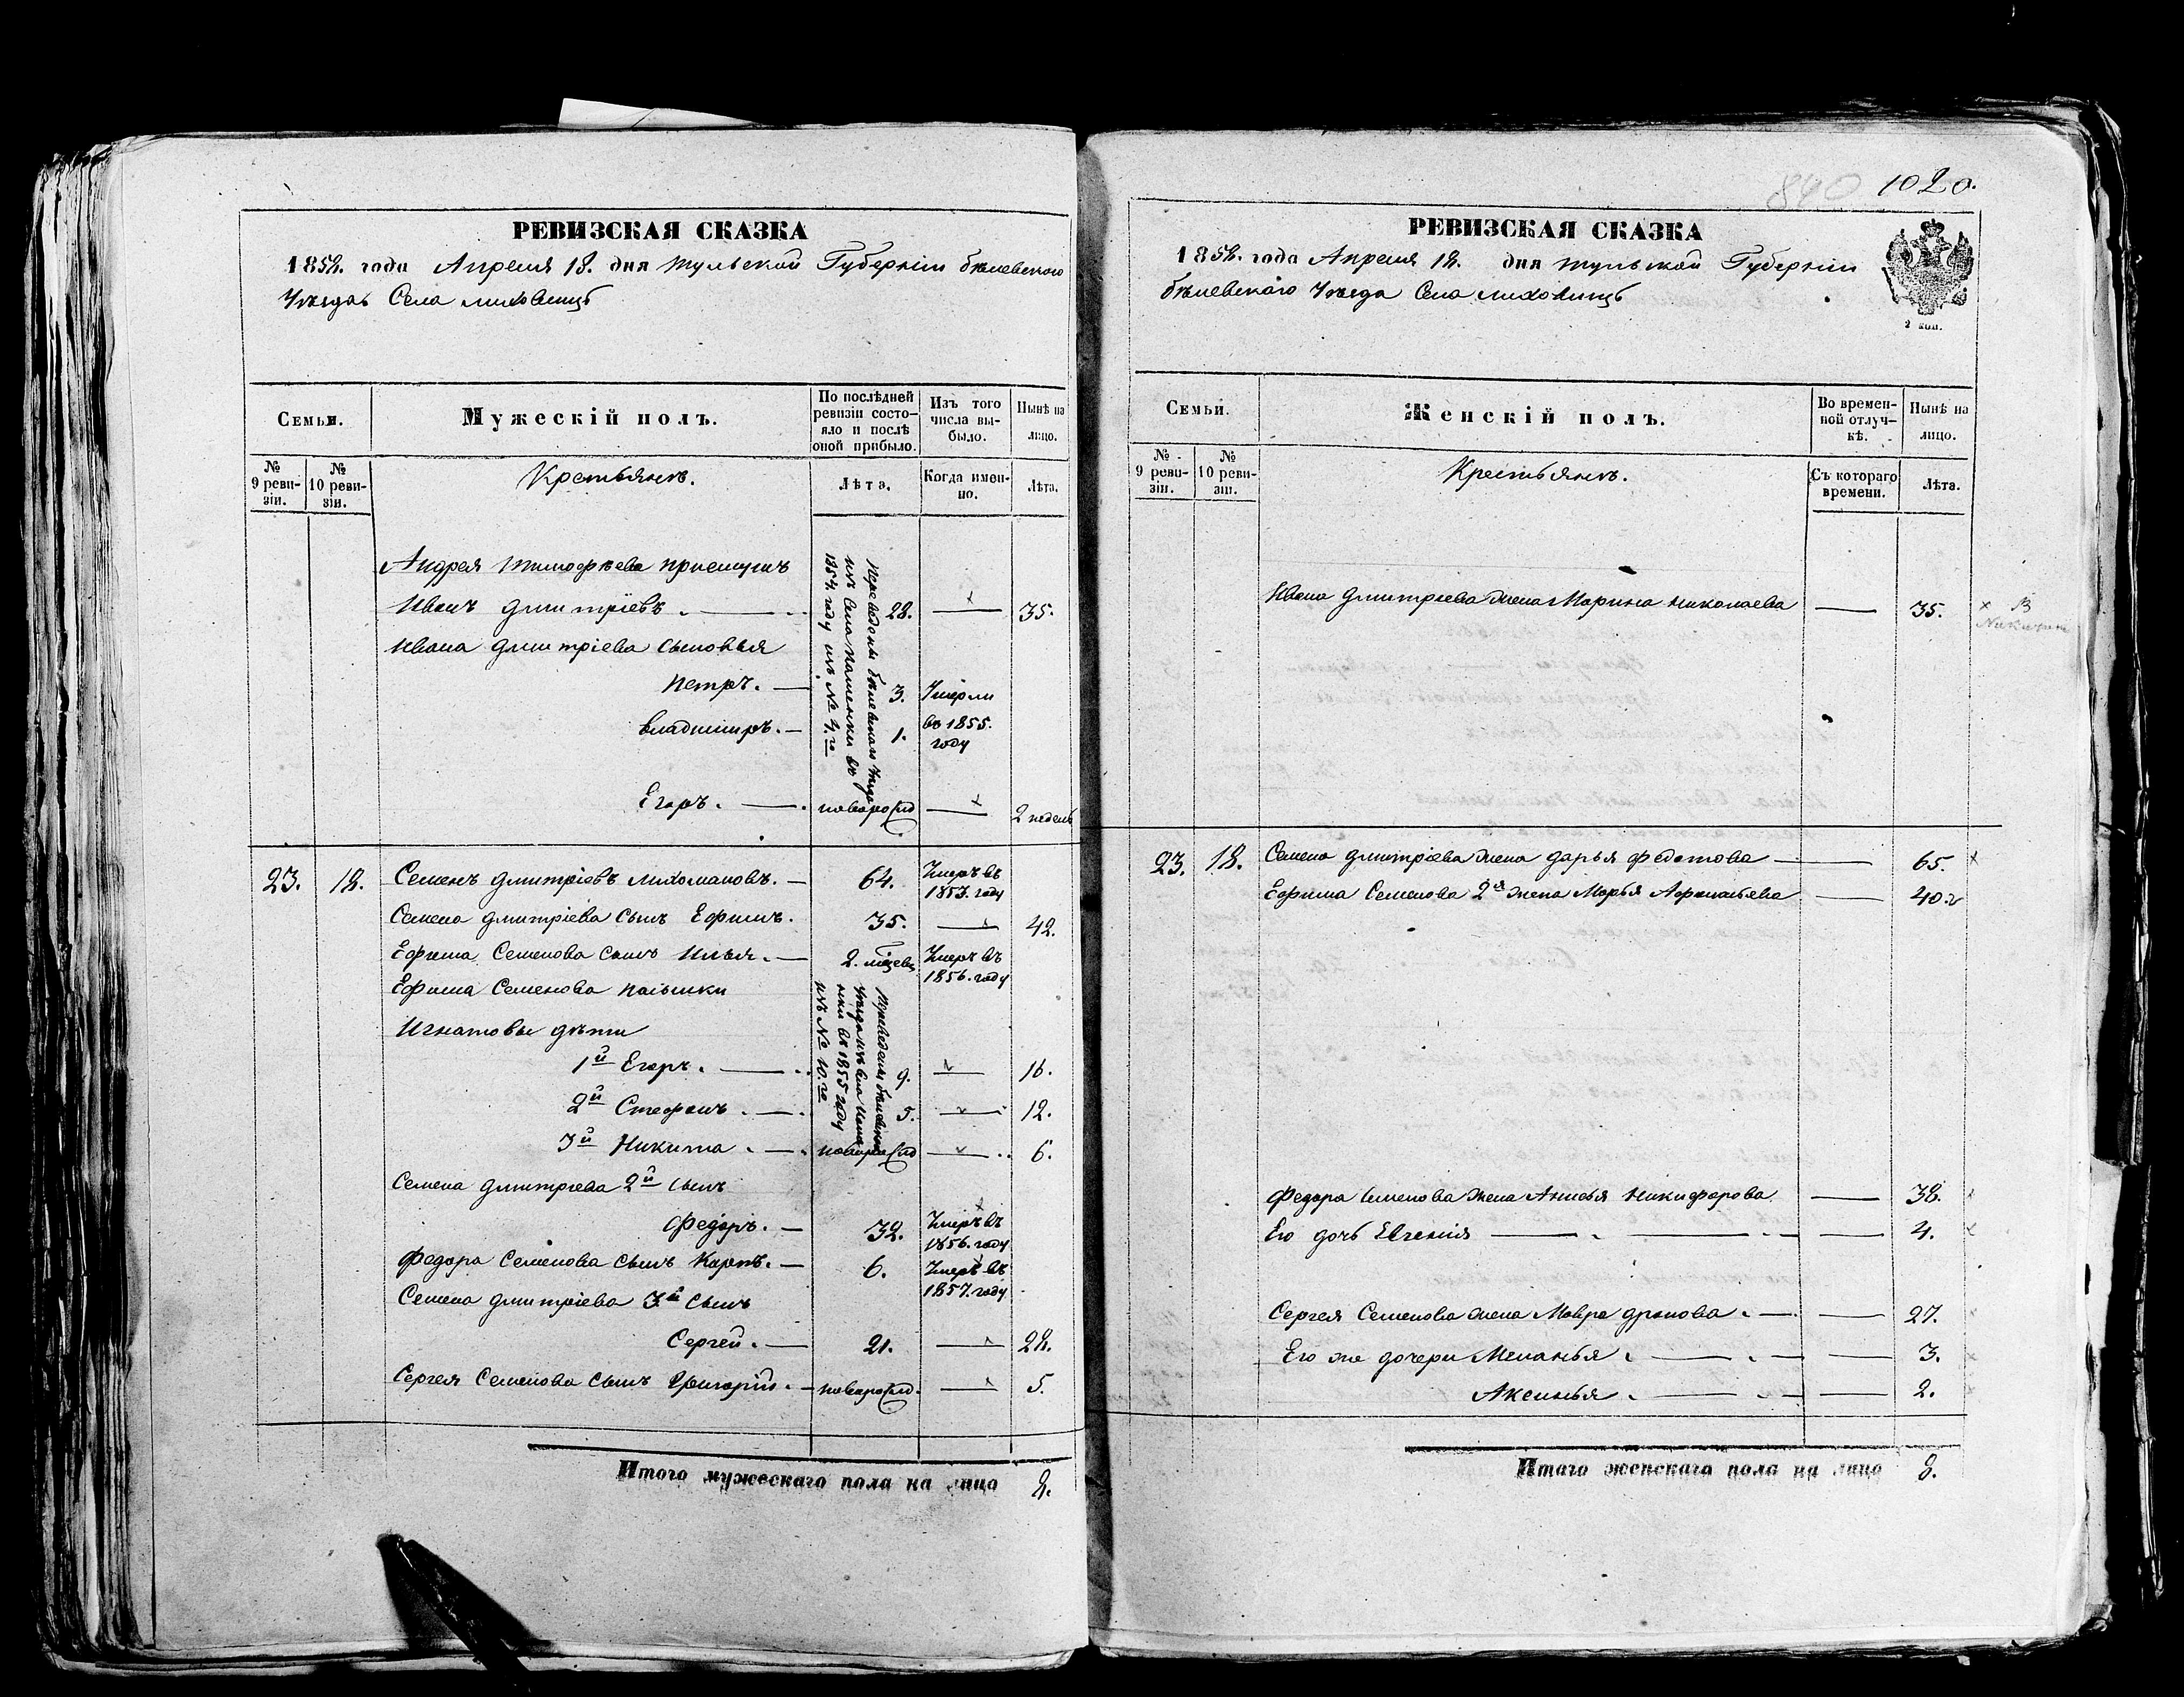 РЕВИЗСКАЯ СКАЗКА
1858. года Апреля 18. дня Тульской Губерніи бѣлевскаго
Уѣзда Села
Семьи.
Мужескій полъ.
По послѣдней ревизіи состояло и послѣ оной прибыло.
Изъ того числа выбыло.
Нынѣ на лицо.
№ 9 ревизіи.
№ 10 ревизіи.
Крестьянъ.
Лѣта.
Когда именно.
Лѣта.
Андрея Тимофѣева приемышъ
Иванъ Дмитріевъ. 28. — 35.
Ивана Дмитріева сыновья
Петръ. — 3. Умерли
Владимиръ. — 1. въ 1855. году
Переведены бѣлевскаго уѣзда
изъ Села въ
1854. году изъ № 4.го
Егоръ. — новорожд — 2 недель
23. 18. Семенъ Дмитріевъ Лихомановъ. — 64. Умеръ въ 1853. году
Семена Дмитріева сынъ Ефимъ. 35. — 42.
Ефима Семенова сынъ Илья. — 2. Умеръ въ 1856. году
Ефима Семенова
Игнатовы дѣти
1й Егоръ. — 9. — 16.
2й Стефанъ. — 5. — 12.
3й Никита. — новорожд — 6.
Переведены бѣлевскаго
уѣзда изъ Села
въ 1855 году
изъ № 10.го
Семена Дмитріева 2й сынъ
Федоръ. — 32. Умеръ въ 1856. году
Федора Семенова сынъ Карпъ. — 6. Умеръ въ 1857. году
Семена Дмитріева 3й сынъ
Сергей. — 21. — 28.
Сергея Семенова сынъ Григорій. — новорожд. — 5.
Итого мужескаго пола на лицо 8.
840 1020.
РЕВИЗСКАЯ СКАЗКА
1858. года Апреля 18. дня Тульской Губерніи
бѣлевскаго Уѣзда Села
2 коп.
Семьи.
Женскій полъ.
Во временной отлучкѣ.
Нынѣ на лицо.
№ 9 ревизіи.
№ 10 ревизіи.
Крестьянъ.
Съ котораго времени.
Лѣта.
Ивана Дмитріева жена Марина Николаева — 35.
23. 18. Семена Дмитріева жена Дарья Федотова — 65.
Ефима Семенова 2я жена Марья Афонасьева — 40.
Федора Семенова жена Анисья Никифорова — 38.
Его дочь Евгенія — 4.
Сергея Семенова жена Мавра — 27.
Его же дочери Меланья — 3.
Аксинья — 2.
Итого женскаго пола на лицо 8.